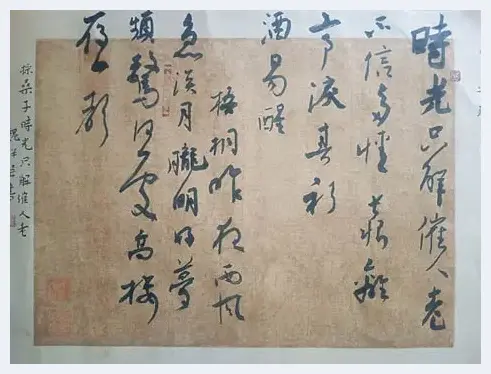 時光只解催人老
不信多情長恨離
亭淚春衫
酒易醒
梧桐昨夜西風
急淡月朧明好夢
頻驚何處高樓
雁一聲
採桑子時光只解催人老